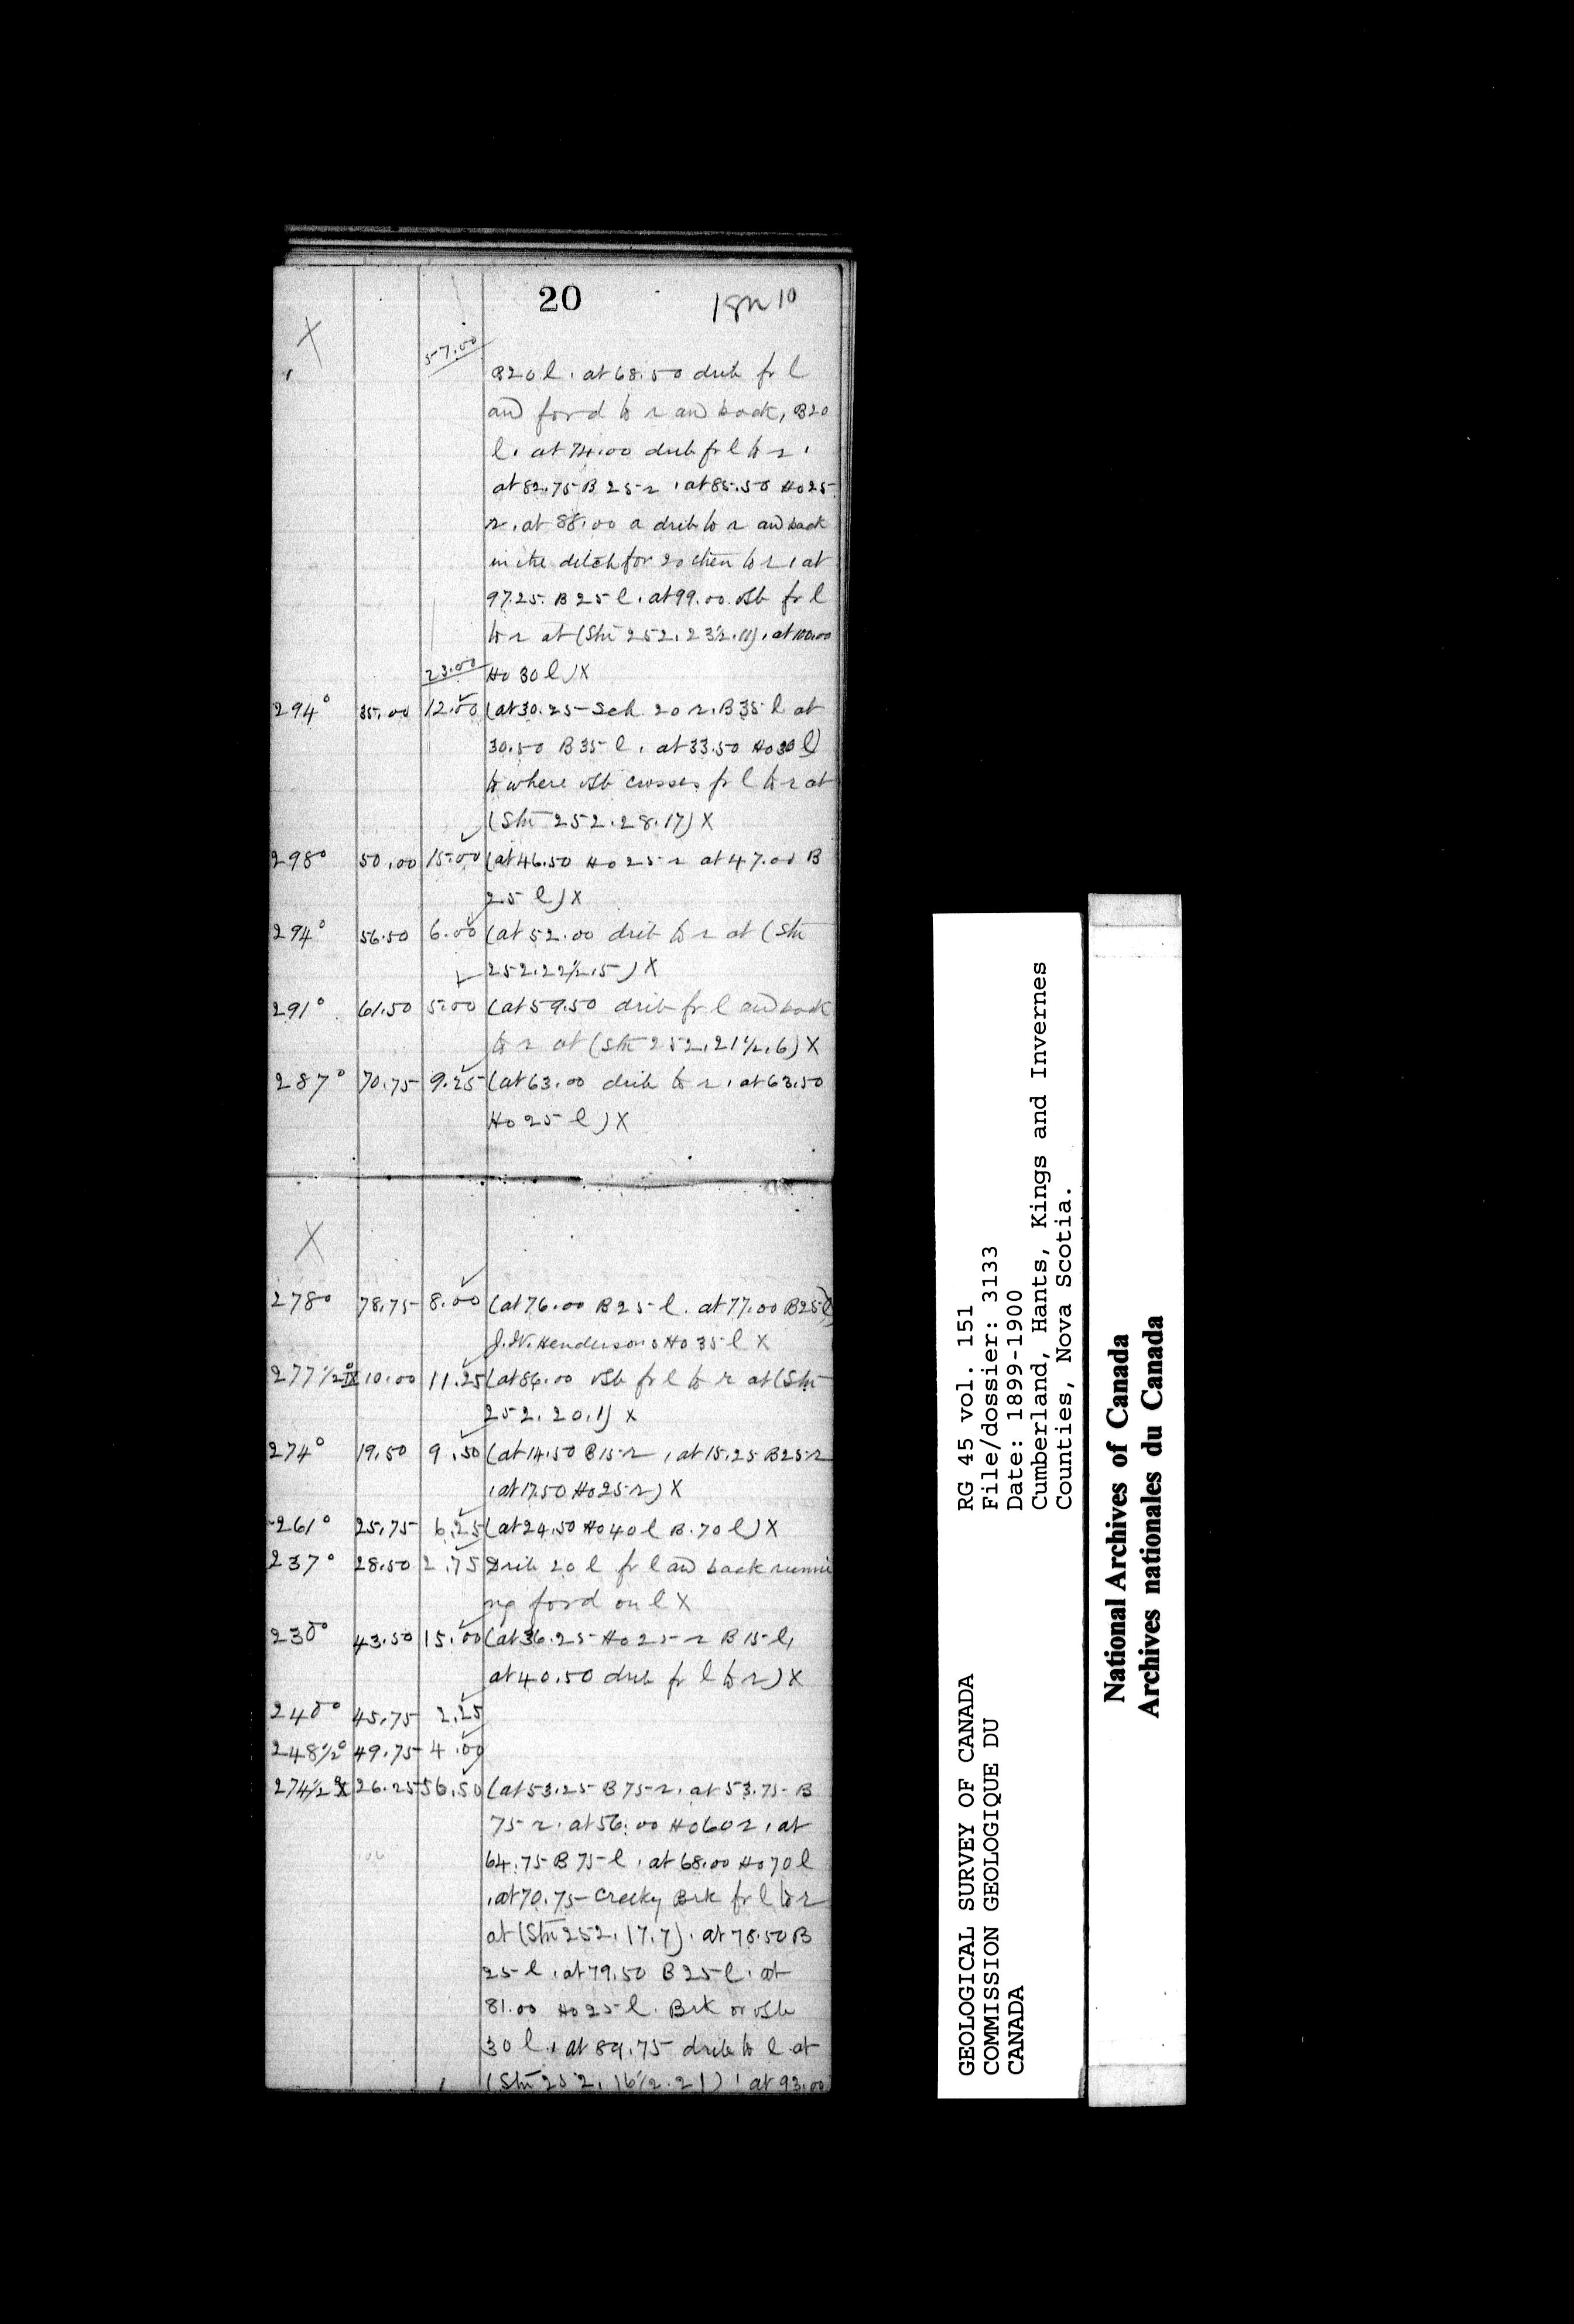 20
57.00
B20 l. at 68.50 drib fr l
and ford to r and back, B20
l. at 74.00 drib fr l to r.
at 82.75 B 25 r. at 85.50 Ho 25
r. at 88.00 a drib to r and back
in the ditch for 20 then to r, at
97.25. B 25 l. at 99.00. fr l
to r at (Stn 252.23½.11). at 100.00
23.00 Ho 30 l) X
294° 35.00 12.00 (at 30.25 Sch 20 r. B 35 l at
30.50 B 35 l. at 33.50 Ho 30 l)
to where crosses fr l to r at
(Stn 252.28.17) X
298° 50.00 15.00 (at 46.50 Ho 25 r at 47.00 B
25 l) X
294° 56.50 6.00 (at 52.00 drib to r at (Stn
252.22½.15) X
291° 61.50 5.00 (at 59.50 drib fr l and back
to r at (Stn 252.21½.6) X
287° 70.75 9.25 (at 63.00 drib to r. at 63.50
Ho 25 l) X
X
278° 78.75 8.00 (at 76.00 B 25 l. at 77.00 B 25 l)
J.W. Hendersons Ho 35 l X
277½° IX 10.00 11.25 (at 86.00 fr l to r at (Stn
252.20.1) X
274° 19.50 9.50 (at 14.50 B 15 r, at 15.25 B 25 r
, at 17.50 Ho 25 r) X
261° 25.75 6.25 (at 24.50 Ho 40 l B. 70 l) X
237° 28.50 2.75 Drib 20 l fr l and back runni
ng ford on l X
230° 43.50 15.00 (at 36.25 Ho 25 r B 15 l,
at 40.50 drib fr l to r) X
240° 45.75 2.25
248½° 49.75 4.00
274½° X 26.25 56.50 (at 53.25 B 75 r. at 53.75 B
75 r. at 56.00 Ho 60 r, at
64.75 B 75 l. at 68.00 Ho 70 l
, at 70.75 Brk fr l to r
at (Stn 252.17.7). at 78.50 B
25 l. at 79.50 B 25 l. at
81.00 Ho 25 l. Brk or
30 l., at 89.75 drib to l at
(Stn 252.16½.21)' at 93.00
GEOLOGICAL SURVEY OF CANADA
COMMISSION GEOLOGIQUE DU
CANADA
RG 45 vol. 151
File/dossier: 3133
Date: 1899-1900
Cumberland, Hants, Kings and Invernes
Counties, Nova Scotia.
National Archives of Canada
Archives nationales du Canada